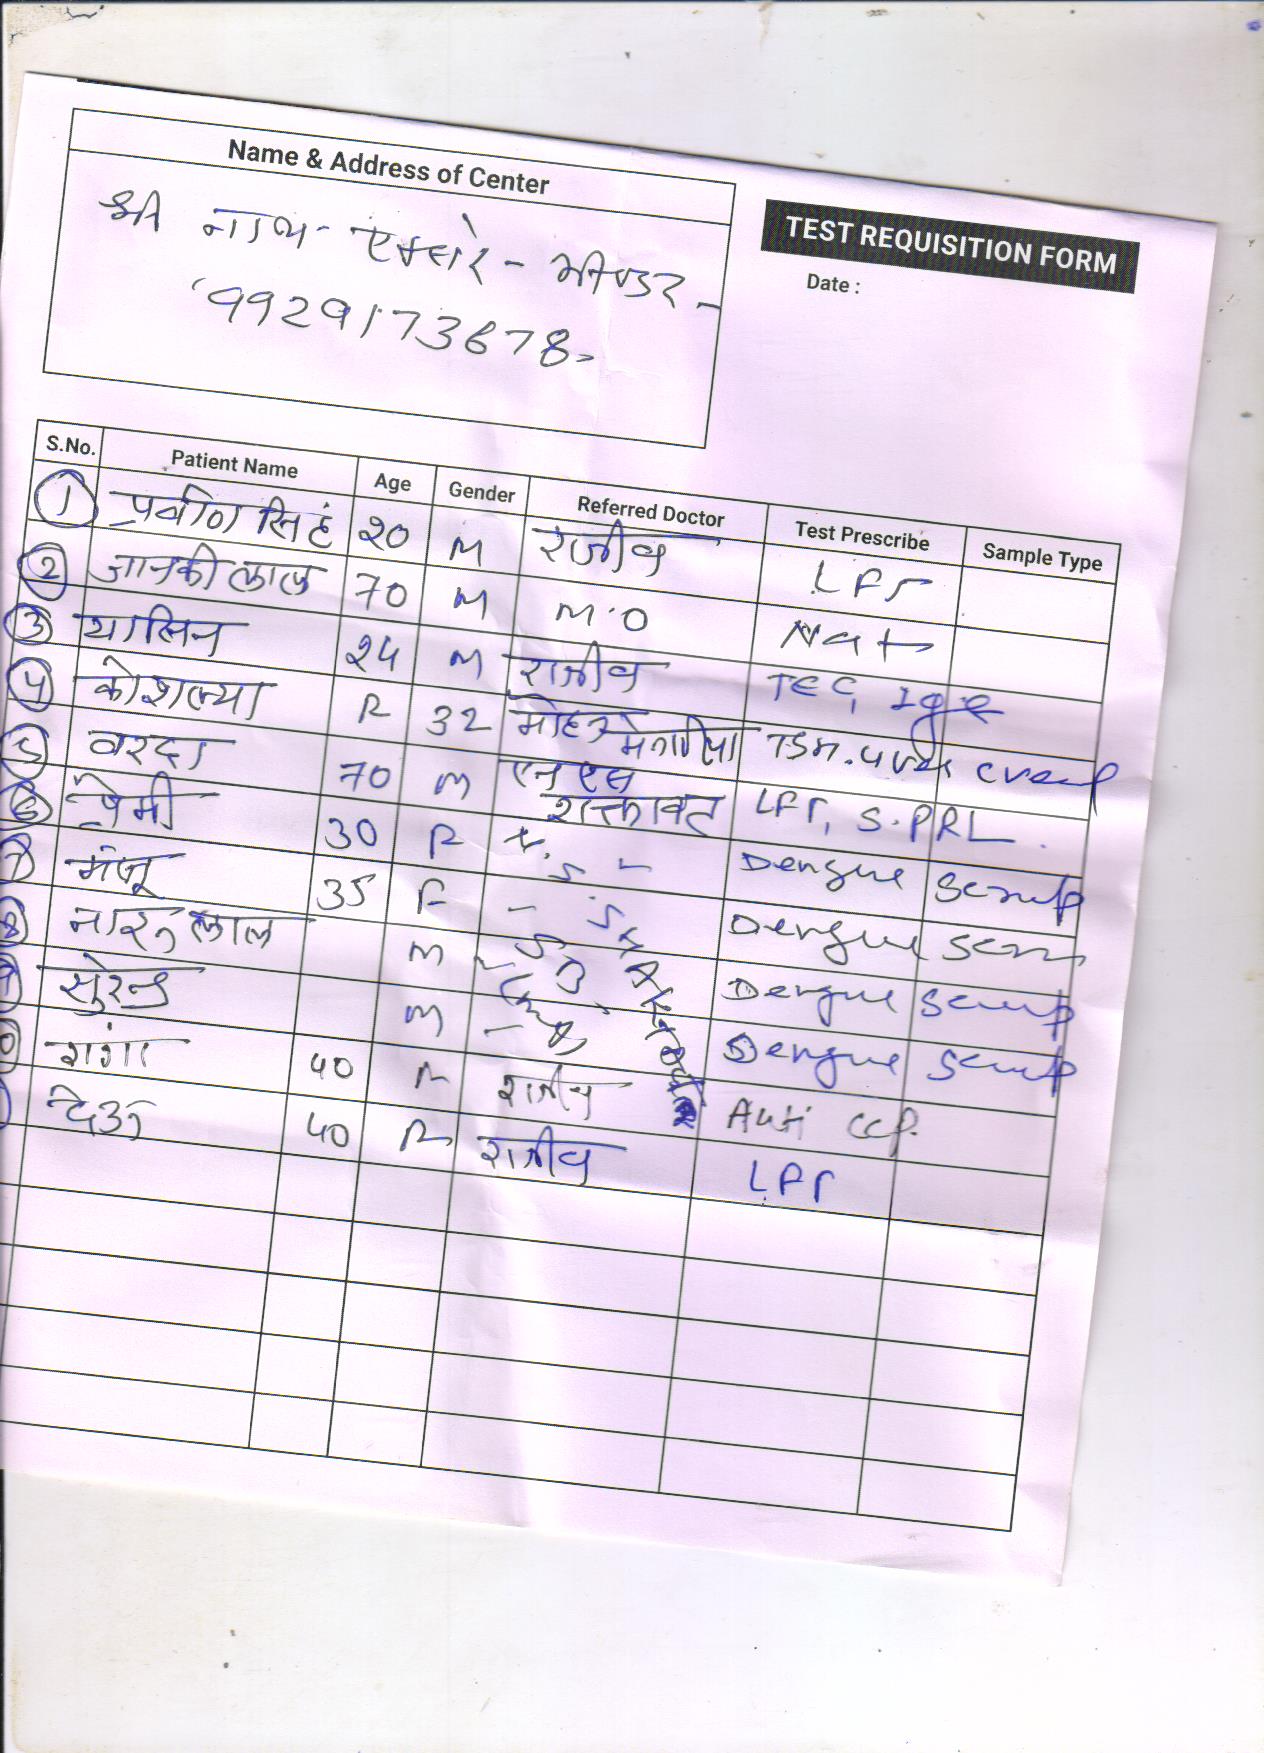 Name & Address of Center
श्री नाथ - एक्सरे - भीण्डर -
9929173678
TEST REQUISITION FORM
Date :
S.No. Patient Name Age Gender Referred Doctor Test Prescribe Sample Type
1 प्रवीण सिंह 20 M राजीव LFT
2 जानकी लाल 70 M M.O Na+
3 यासिन 24 M राजीव TEC, Ige
4 कोशल्या F 32 मोहन TSH. Urea
5 वरदा 70 M एन एस शक्तावत LFT, S. PRL
6 प्रेमी 30 F Dengue
7 मंजू 35 F Dengue
8 लाल M Dengue
9 सुरेन्द्र M Dengue
10 गंगा 40 F राजीव Anti CCP.
देऊ 40 F राजीव LFT